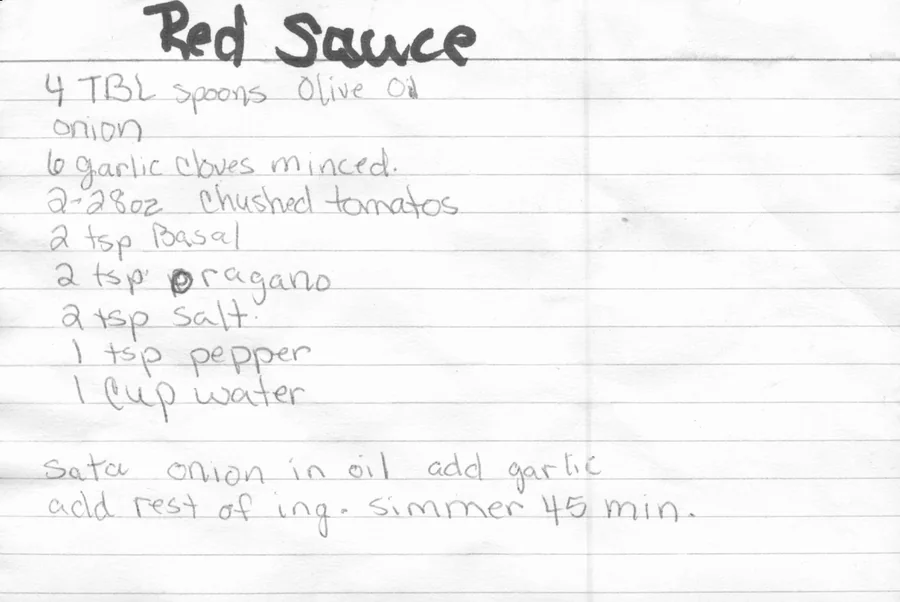 Red Sauce
4 TBL spoons Olive Oil
onion
6 garlic cloves minced.
2-28oz Chushed tomatos
2 tsp Basal
2 tsp oragano
2 tsp salt.
1 tsp pepper
1 Cup water
Sata onion in oil add garlic
add rest of ing. simmer 45 min.